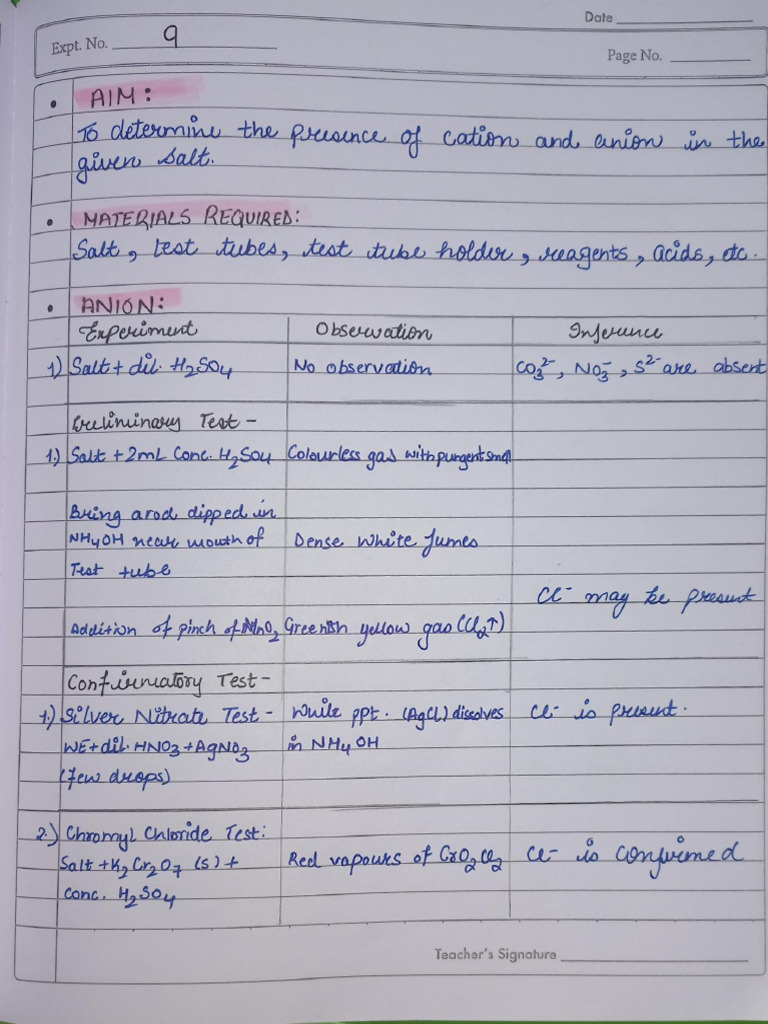 Date
Expt. No. 9
Page No.
AIM:
To determine the presence of cation and anion in the
given salt.
MATERIALS REQUIRED:
Salt, test tubes, test tube holder, reagents, acids, etc.
ANION:
Experiment Observation Inference
1) Salt + dil. H2SO4 No observation CO3²⁻, NO3⁻, S²⁻ are absent
Preliminary Test -
1.) Salt + 2mL Conc. H2SO4 Colourless gas with pungent smell
Bring a rod dipped in
NH4OH near mouth of Dense White fumes
Test tube
Cl⁻ may be present
Addition of pinch of MnO2 Greenish yellow gas (Cl2↑)
Confirmatory Test -
1.) Silver Nitrate Test - White ppt. (AgCl) dissolves Cl⁻ is present.
WE + dil. HNO3 + AgNO3 in NH4OH
(few drops)
2.) Chromyl Chloride Test:
Salt + K2Cr2O7 (s) + Red vapours of CrO2Cl2 Cl⁻ is confirmed
Conc. H2SO4
Teacher's Signature